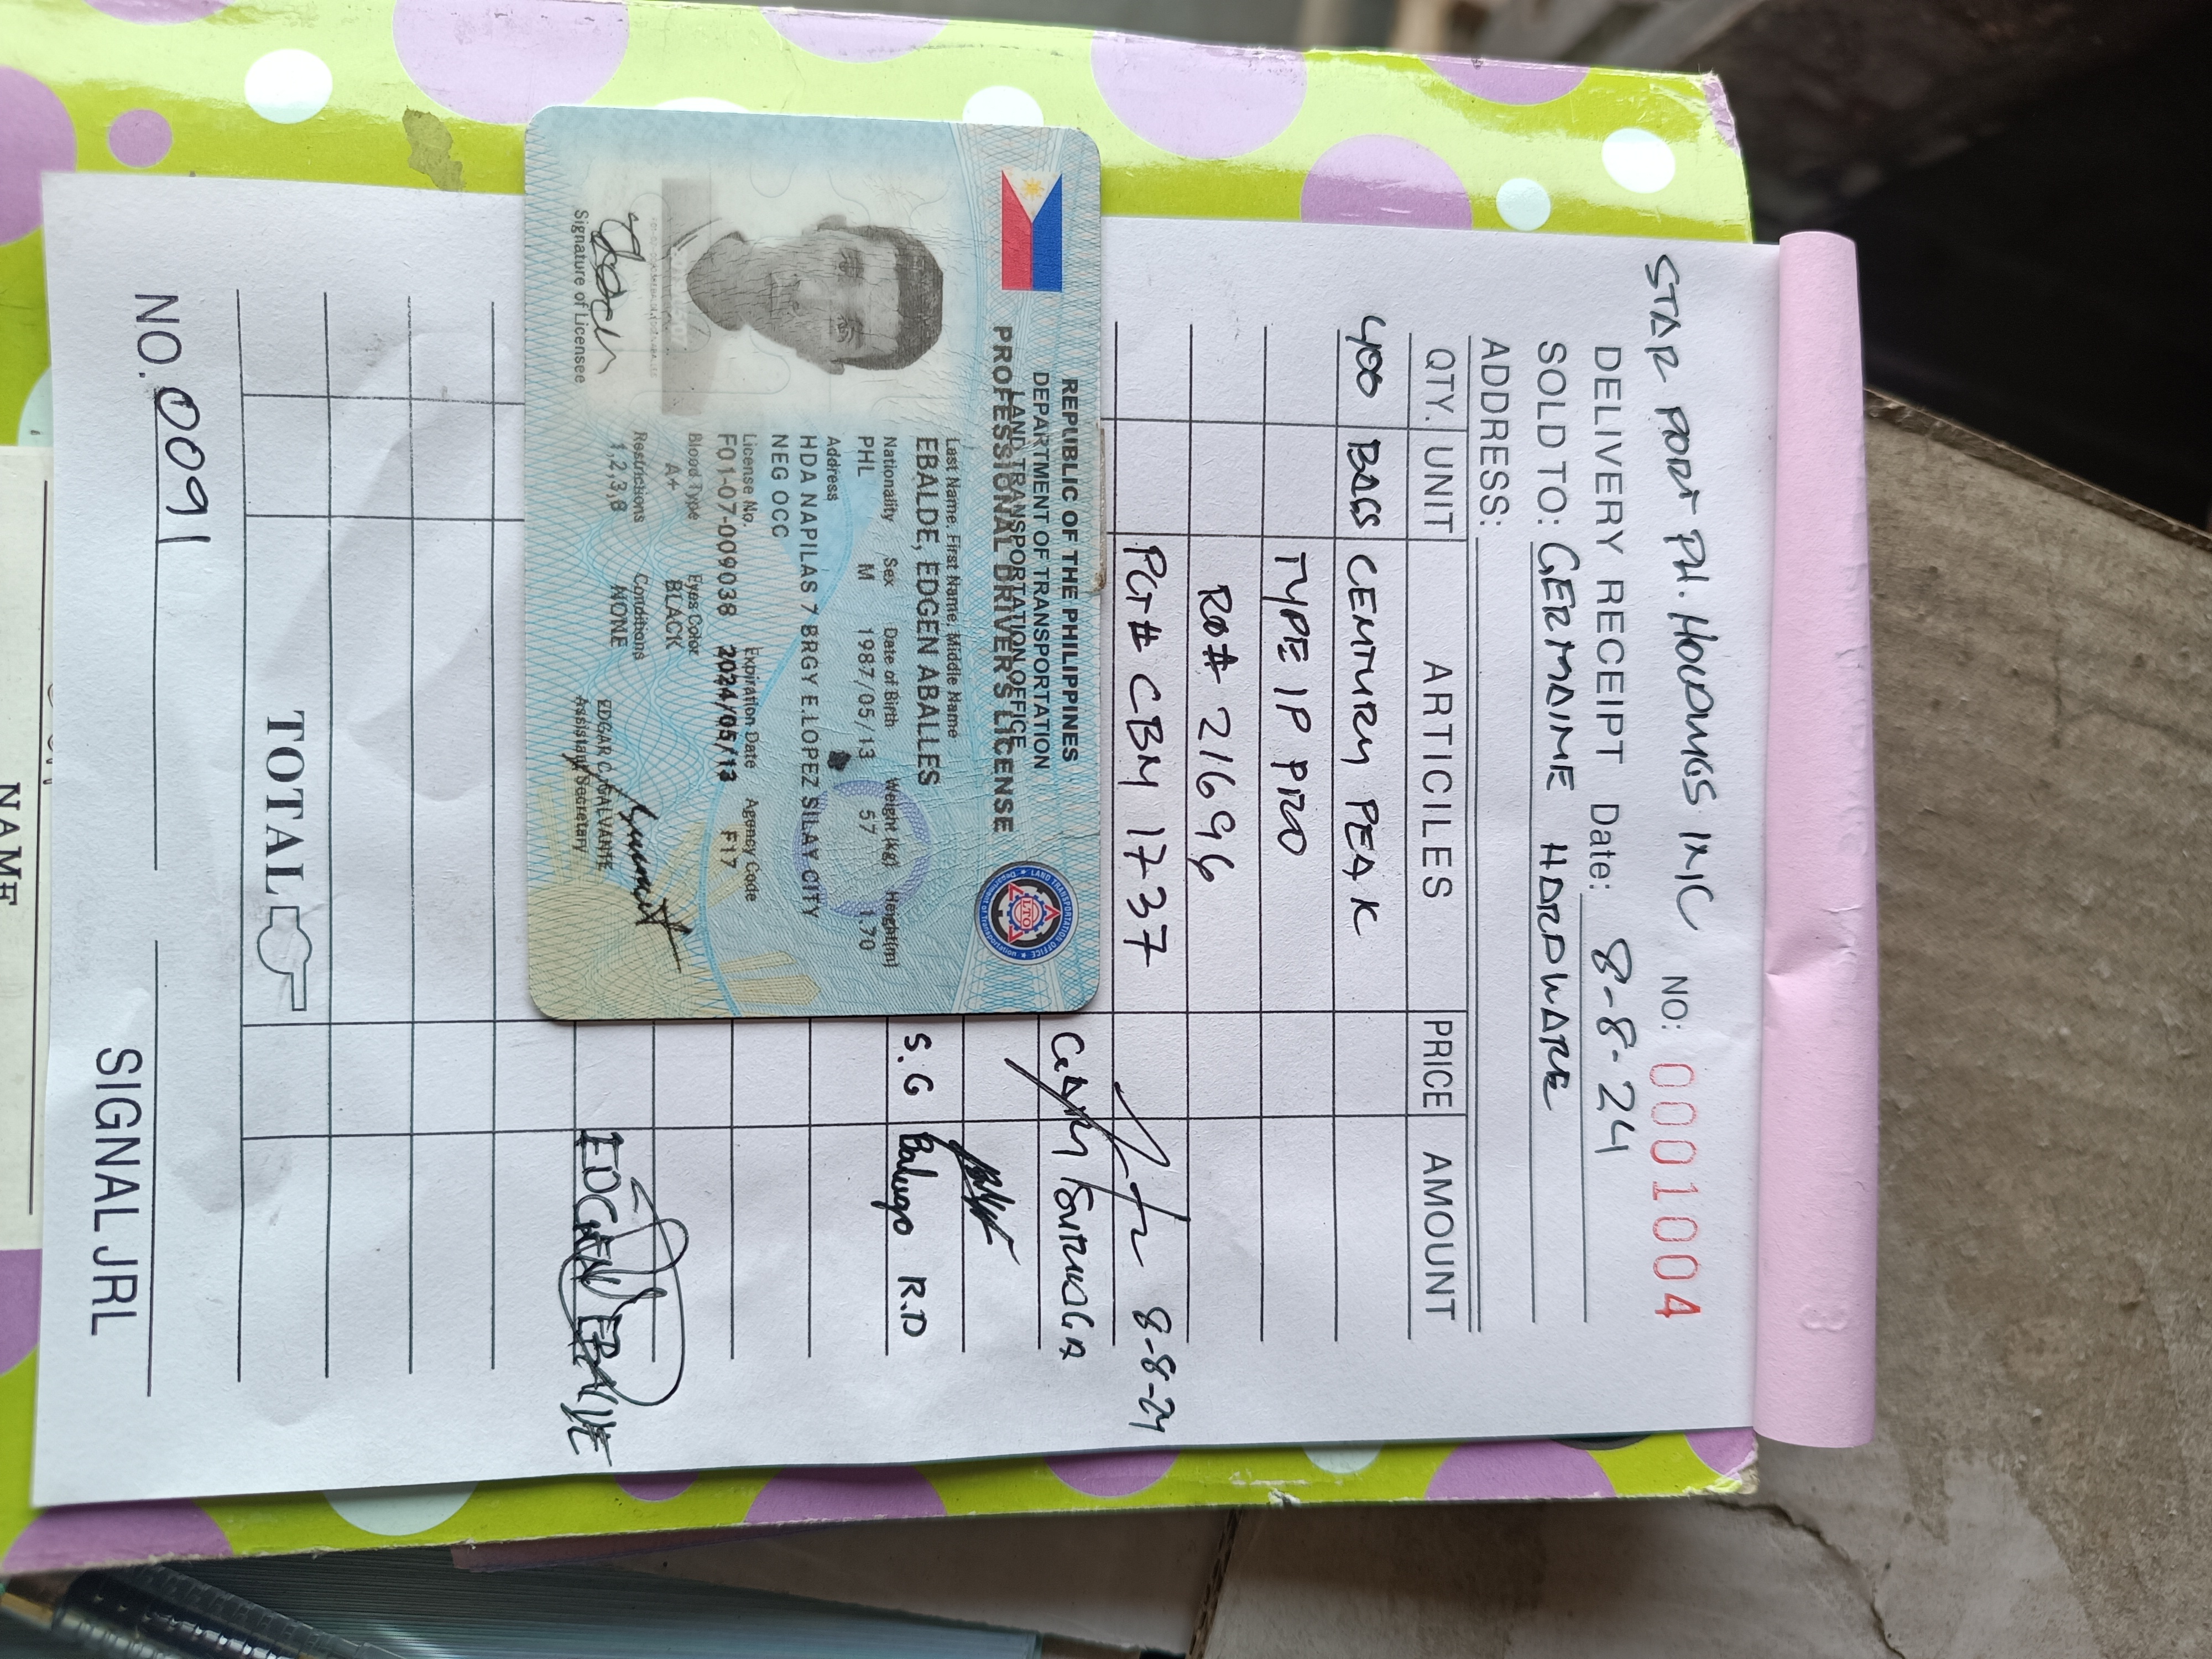 STAR PORT PH. HOLDINGS INC NO: 0001004
DELIVERY RECEIPT Date: 8-8-24
SOLD TO: GERMAINE HARDWARE
ADDRESS:
QTY. UNIT ARTICILES PRICE AMOUNT
400 BAGS CENTURY PEAK
TYPE 1P PRO
RO# 21696
PLT# CBM 1737
8-8-24
S.G R.D
EDGEN EBALDE
TOTAL
NO. 0091
SIGNAL JRL
REPUBLIC OF THE PHILIPPINES
DEPARTMENT OF TRANSPORTATION
LAND TRANSPORTATION OFFICE
PROFESSIONAL DRIVER'S LICENSE
Last Name, First Name, Middle Name
EBALDE, EDGEN ABALLES
Nationality Sex Date of Birth Weight (kg) Height(m)
PHL M 1987/05/13 57 1.70
Address
HDA NAPILAS 7 BRGY E.LOPEZ SILAY CITY
NEG OCC
License No. Expiration Date Agency Code
F01-07-009038 2024/05/13 F17
Blood Type Eyes Color
A+ BLACK
Restrictions Conditions
1,2,3,8 NONE
EDGAR C. GALVANTE
Assistant Secretary
Signature of Licensee
LTO
LAND TRANSPORTATION OFFICE
Department of Transportation
NAME